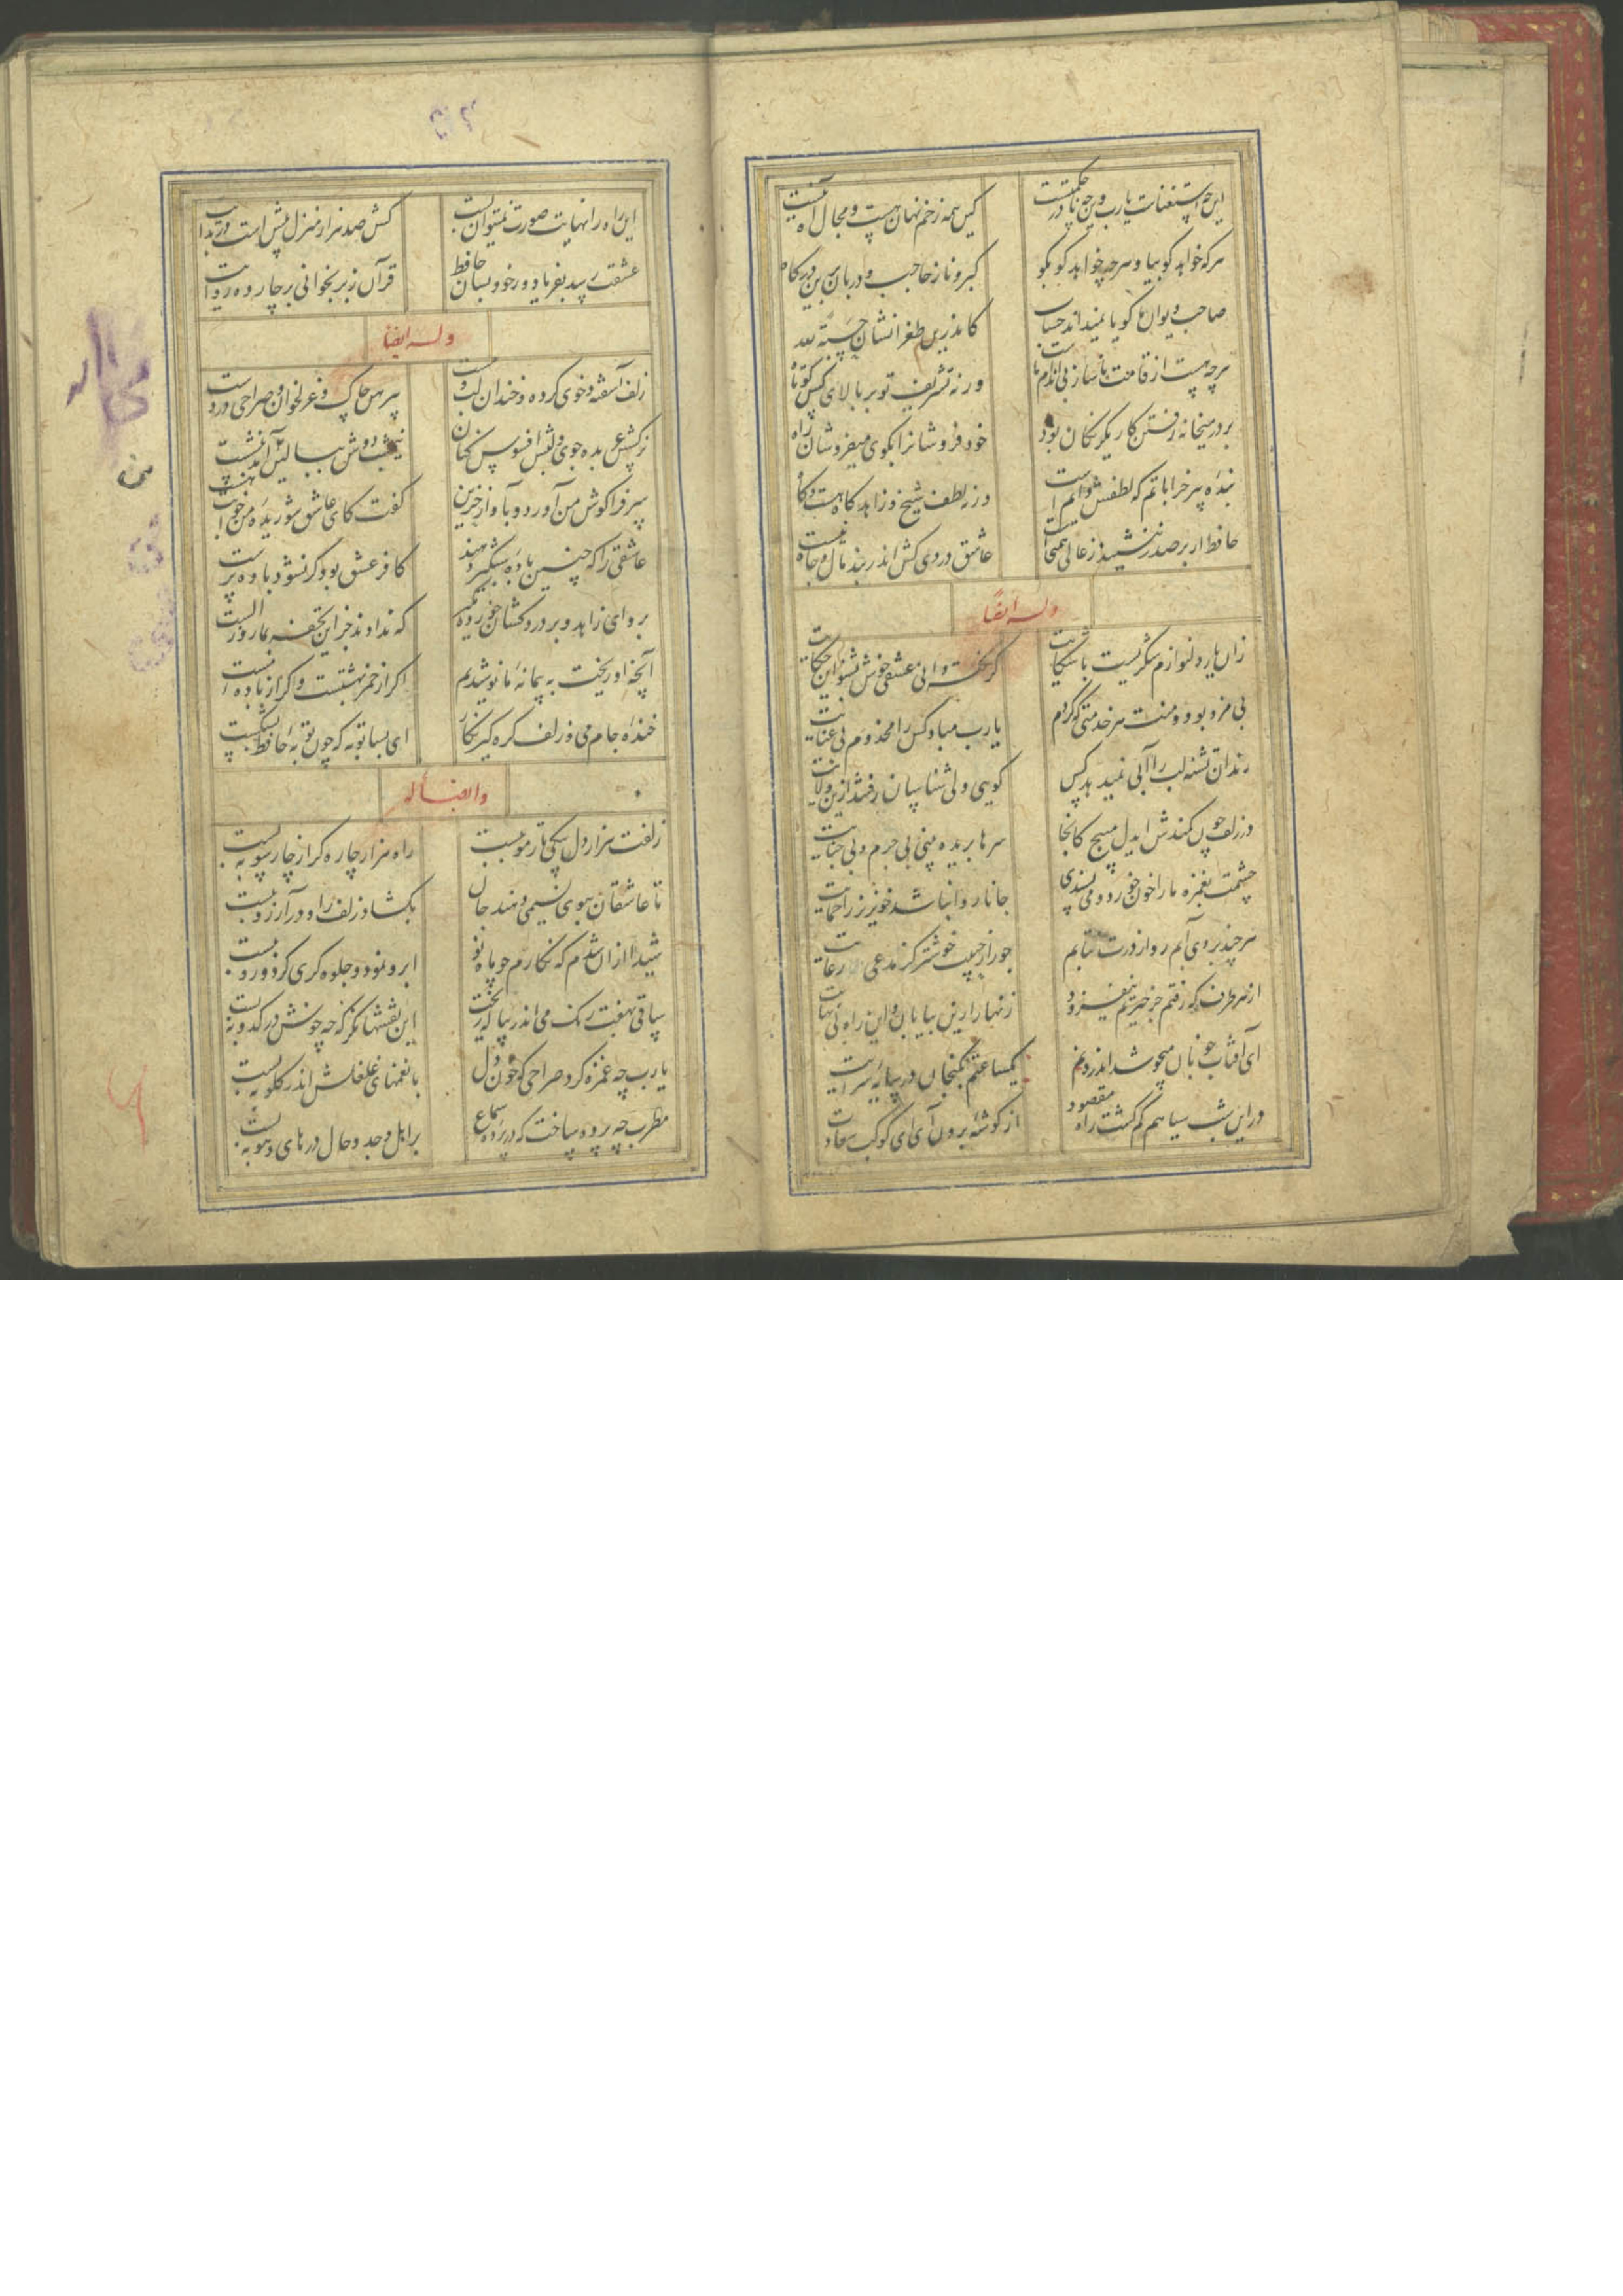 این چه استغناست یارب وین چه نادر حکمتست
کین همه زخم نهان هست و مجال آه نیست
هرکه خواهد کو بیا و هرچه خواهد کو بکو
کبر و ناز حاجب و دربان برین درکاه نیست
صاحب دیوان ما کویا نمیداند حساب
کاندرین طغرا نشان حسبة لله نیست
هرچه هست از قامت ناساز بی اندام ماست
ورنه تشریف تو بر بالای کس کوتاه نیست
بر در میخانه رفتن کار یکرنکان بود
خود فروشانرا بکوی میفروشان راه نیست
بنده پیر خراباتم که لطفش دایم است
ورنه لطف شیخ و زاهد کاه هست و کاه نیست
حافظ ار بر صدر ننشیند ز عالی همتی است
عاشق دردی کش اندر بند مال و جاه نیست
وله ایضا
زان یار دلنوازم شکریست با شکایت
کر نکته دان عشقی خوش بشنو این حکایت
بی مزد بود و منت هر خدمتی که کردم
یارب مباد کس را مخدوم بی عنایت
رندان تشنه لب را آبی نمیدهد کس
کویی ولی شناسان رفتند ازین ولایت
در زلف چون کمندش ایدل مپیچ کانجا
سرها بریده بینی بی جرم و بی جنایت
چشمت بغمزه ما را خون خورد و می پسندی
جانا روا نباشد خونریز را حمایت
هرچند بردی آبم رو از درت نتابم
جور از حبیب خوشتر کز مدعی رعایت
از هر طرف که رفتم جز حیرتم نیفزود
زنهار ازین بیابان وین راه بی نهایت
ای آفتاب خوبان میجوشد اندرونم
یکساعتم بکنجان در سایه عنایت
در این شب سیاهم کم کشت راه مقصود
از کوشه برون آی ای کوکب هدایت
این راه را نهایت صورت نمیتوان بست
کش صد هزار منزل بیش است در بدایت
عشقت رسد بفریاد ور خود بسان حافظ
قرآن ز بر بخوانی بر چارده روایت
وله ایضا
زلف آشفته و خوی کرده و خندان لب و مست
پیرهن چاک و غزلخوان و صراحی در دست
نرکسش عربده جوی و لبش افسوس کنان
نیمشب دوش ببالین من آمد بنشست
سر فرا کوش من آورد و بآواز حزین
کفت کای عاشق شوریده من خوابت هست
عاشقی را که چنین باده شبکیر دهند
کافر عشق بود کر نشود باده پرست
برو ای زاهد و بر دردکشان خورده مکیر
که ندادند جز این تحفه بما روز الست
آنچه او ریخت به پیمانه ما نوشیدیم
اکر از خمر بهشتست و اکر از باده مست
خنده جام می و زلف کره کیر نکار
ای بسا توبه که چون توبه حافظ بشکست
وایضا له
زلفت هزار دل بیکی تار مو ببست
راه هزار چاره کر از چار سو ببست
تا عاشقان ببوی نسیمی دهند جان
بکشاد زلف را و در آرزو ببست
شیدا ازان شدم که نکارم چو ماه نو
ابرو نمود و جلوه کری کرد و رو ببست
ساقی بهفت رنک می اندر پیاله ریخت
این نقشها نکر که چه خوش در کدو ببست
یارب چه غمزه کرد صراحی که خون دل
با نغمهای غلغلش اندر کلو ببست
مطرب چه پرده ساخت که در پرده سماع
بر اهل وجد و حال در های و هو ببست